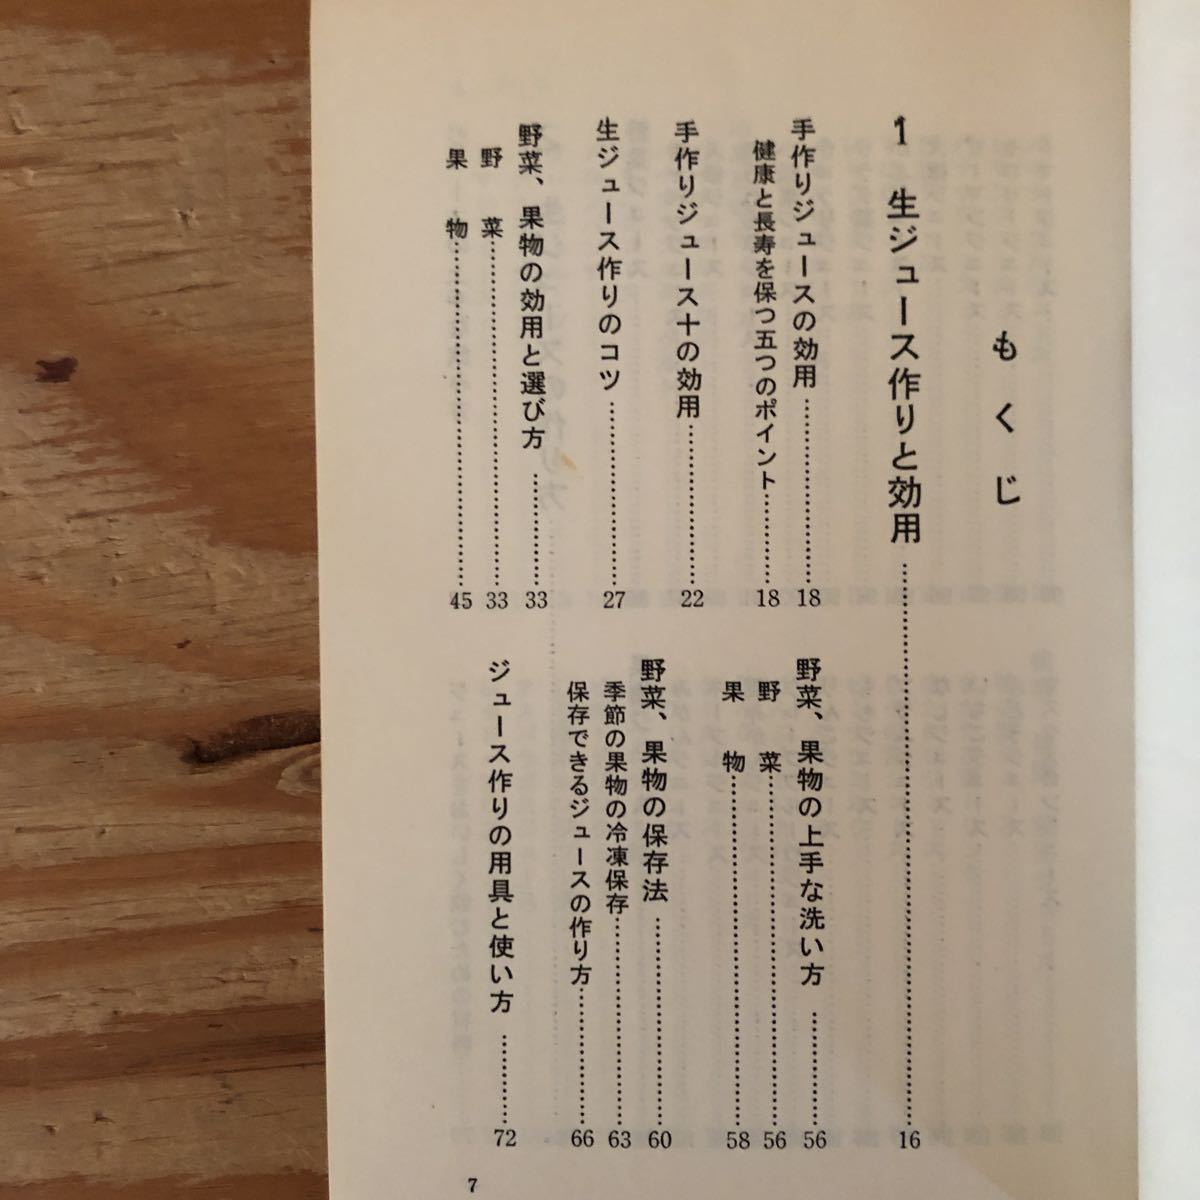 もくじ
1 生ジュース作りと効用……16
手作りジュースの効用……18
健康と長寿を保つ五つのポイント……18
手作りジュース十の効用……22
生ジュース作りのコツ……27
野菜、果物の効用と選び方……33
野菜……33
果物……45
野菜、果物の上手な洗い方……56
野菜……56
果物……58
野菜、果物の保存法……60
季節の果物の冷凍保存……63
保存できるジュースの作り方……66
ジュース作りの用具と使い方……72
7